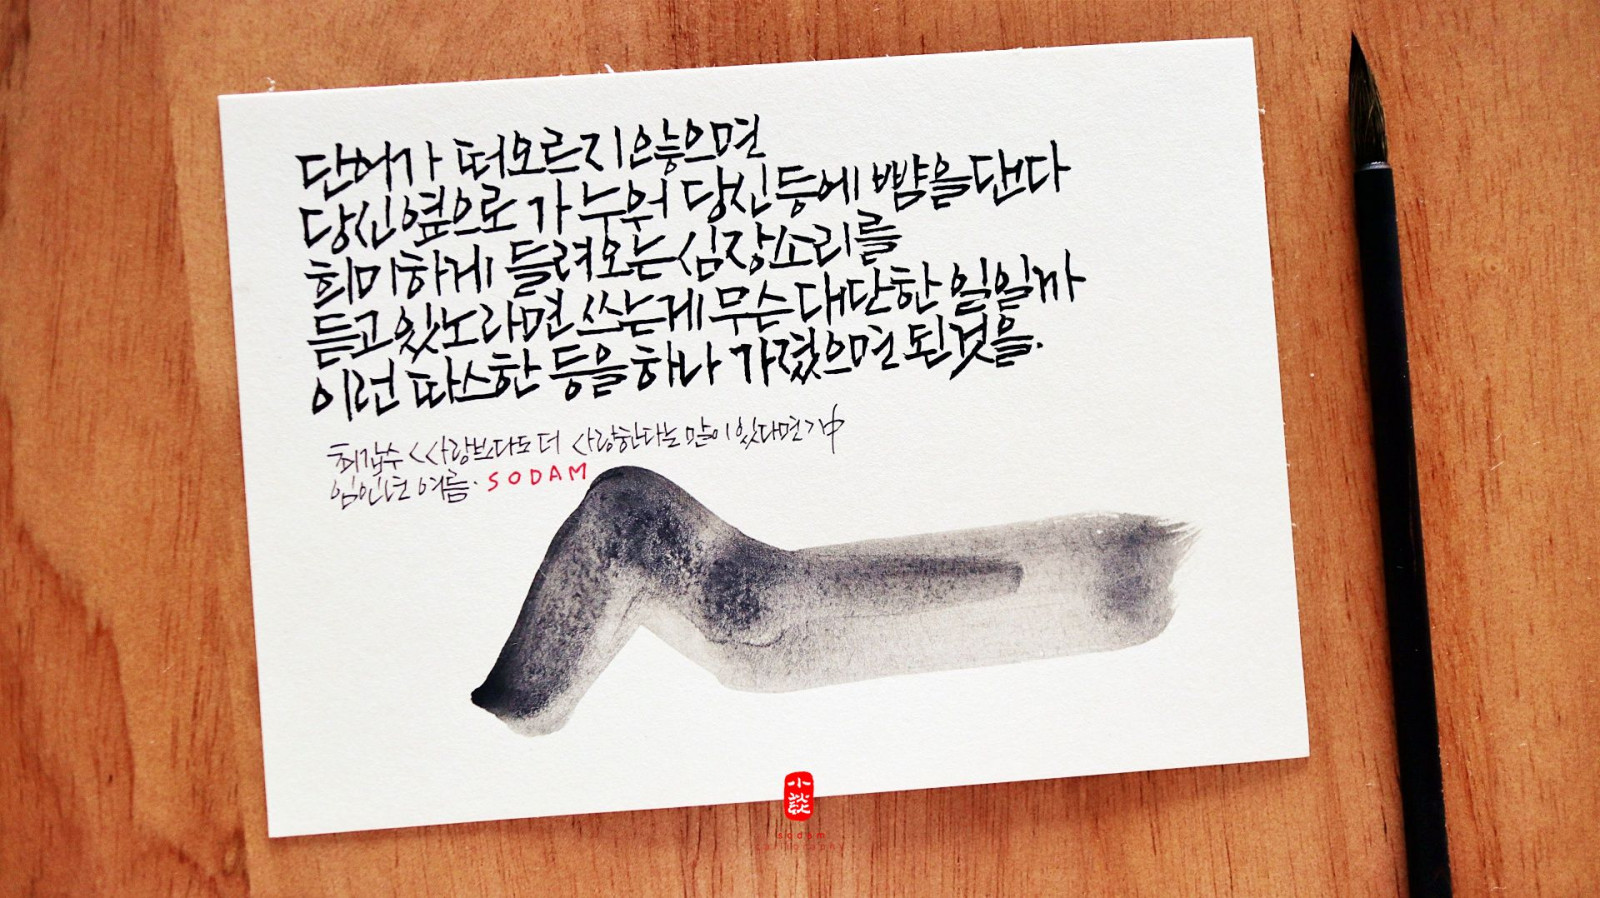 단어가 떠오르지 않으면
당신 옆으로 가 누워 당신 등에 뺨을 댄다
희미하게 들려오는 심장소리를
듣고 있노라면 쓰는게 무슨 대단한 일일까
이런 따스한 등을 하나 가졌으면 된것을.
최갑수 <<사랑보다도 더 사랑한다는 말이 있다면>> 中
임인년 여름. SODAM
小談
sodam
calligraphy